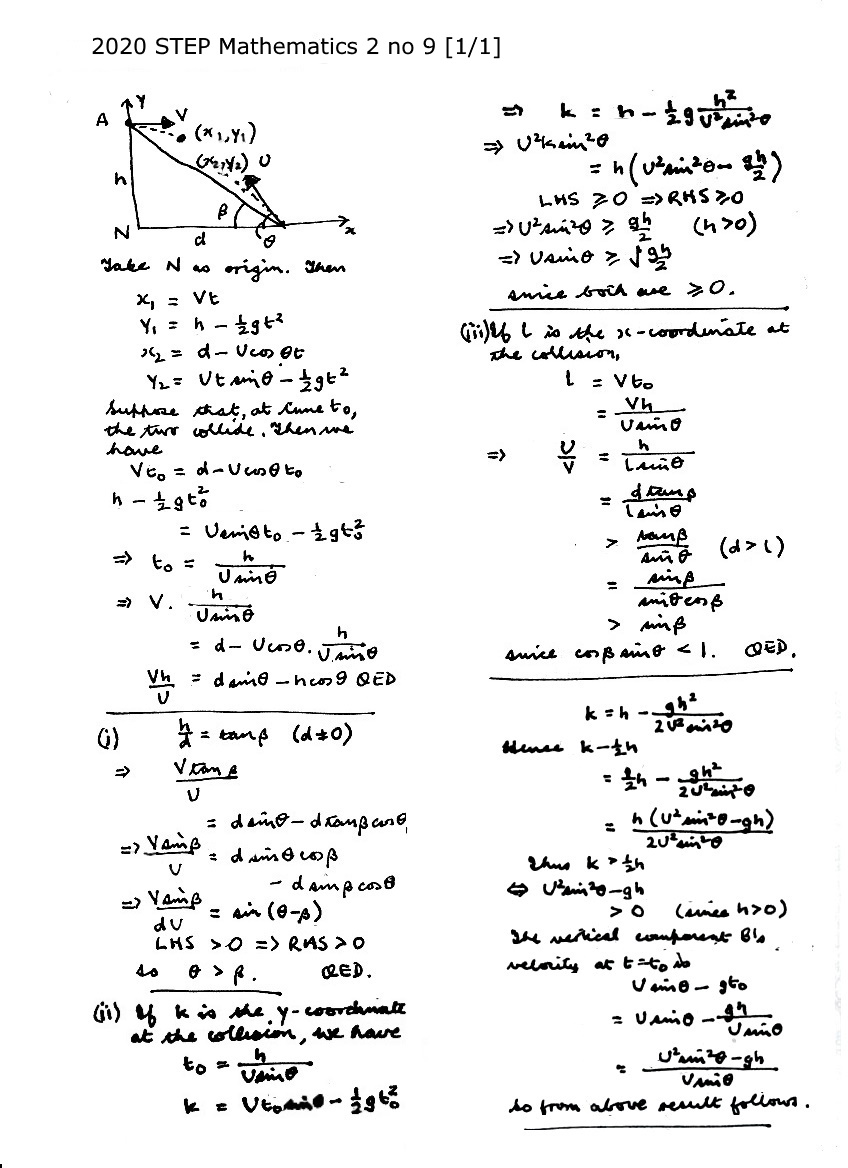 2020 STEP Mathematics 2 no 9 [1/1]
Y
A
V
(x₁,Y₁)
(x₂,Y₂) U
h
β
N
d
θ
x
Take N as origin. Then
x₁ = Vt
Y₁ = h - ½gt²
x₂ = d - U cos θt
Y₂ = Ut sinθ - ½gt²
Suppose that, at time t₀,
the two collide. Then we
have
Vt₀ = d - U cosθ t₀
h - ½gt₀²
= U sinθ t₀ - ½gt₀²
⇒ t₀ = h/(U sinθ)
⇒ V. h/(U sinθ)
= d - U cosθ. h/(U sinθ)
Vh/U = d sinθ - h cosθ QED
(i) h/d = tanβ (d≠0)
⇒ V tanβ/U
= d sinθ - d tanβ cosθ
⇒ V sinβ/U = d sinθ cosβ
- d sinβ cosθ
⇒ V sinβ/dU = sin(θ-β)
LHS > 0 ⇒ RHS > 0
so θ > β. QED.
(ii) If k is the y-coordinate
at the collision, we have
t₀ = h/(U sinθ)
k = Ut₀ sinθ - ½gt₀²
⇒ k = h - ½g h²/(U² sin²θ)
⇒ U²k sin²θ
= h(U² sin²θ - gh/2)
LHS ⩾ 0 ⇒ RHS ⩾ 0
⇒ U² sin²θ ⩾ gh/2 (h>0)
⇒ U sinθ ⩾ √(gh/2)
since both are ⩾ 0.
(iii) If l is the x-coordinate at
the collision,
l = Vt₀
= Vh/(U sinθ)
⇒ U/V = h/(l sinθ)
= d tanβ/(l sinθ)
> tanβ/sinθ (d > l)
= sinβ/(sinθ cosβ)
> sinβ
since cosβ sinθ < 1. QED.
k = h - gh²/(2U² sin²θ)
Hence k - ½h
= ½h - gh²/(2U² sin²θ)
= h(U² sin²θ - gh)/(2U² sin²θ)
Thus k > ½h
⇔ U² sin²θ - gh
> 0 (since h>0)
The vertical component B's
velocity at t = t₀ is
U sinθ - gt₀
= U sinθ - gh/(U sinθ)
= (U² sin²θ - gh)/(U sinθ)
so from above result follows.